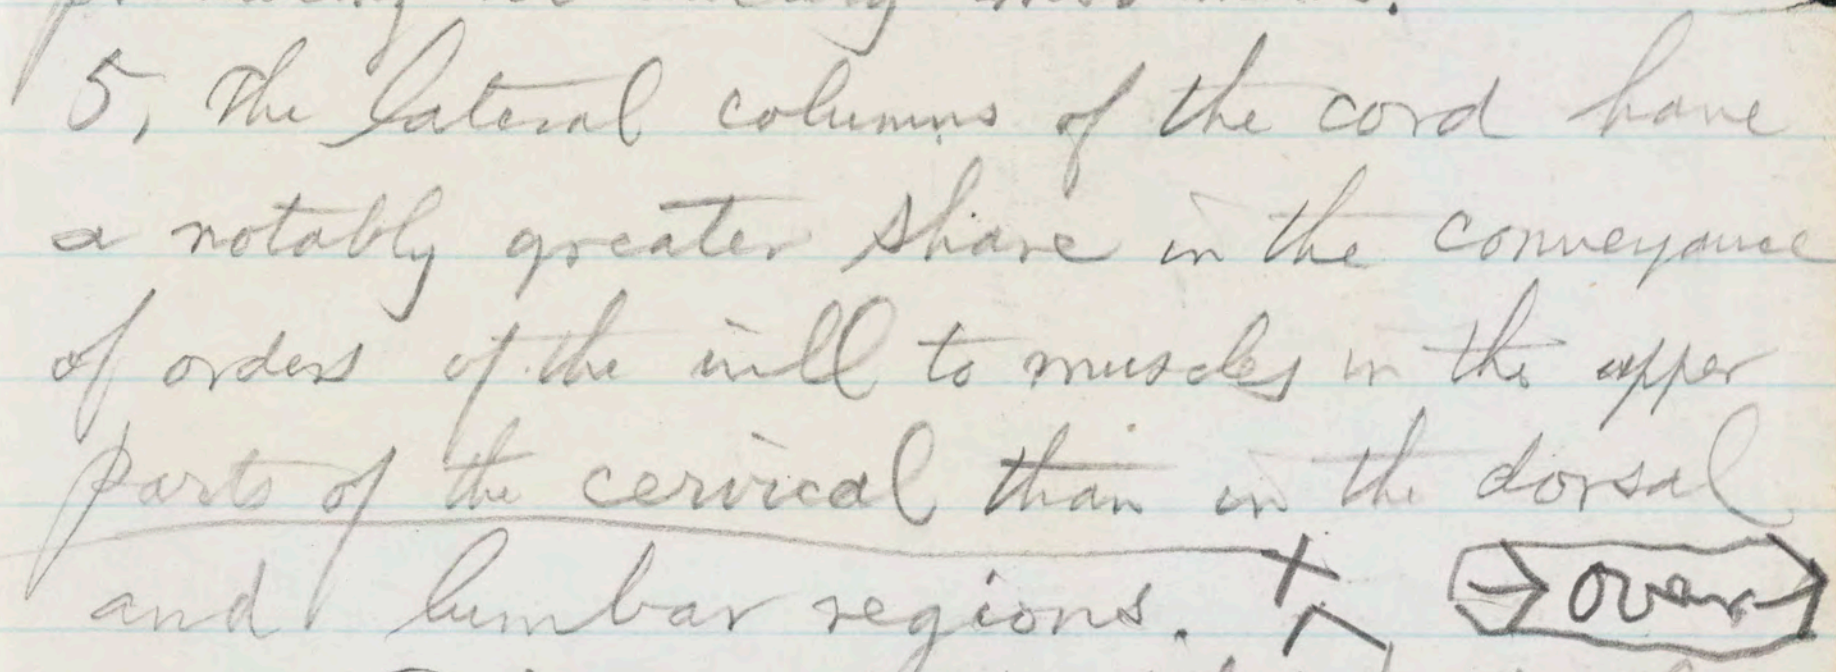 5, The lateral columns of the cord have
a notably greater share in the conveyance
of orders of the will to muscles in the upper
parts of the cervical than in the dorsal
and lumbar regions. + → over →